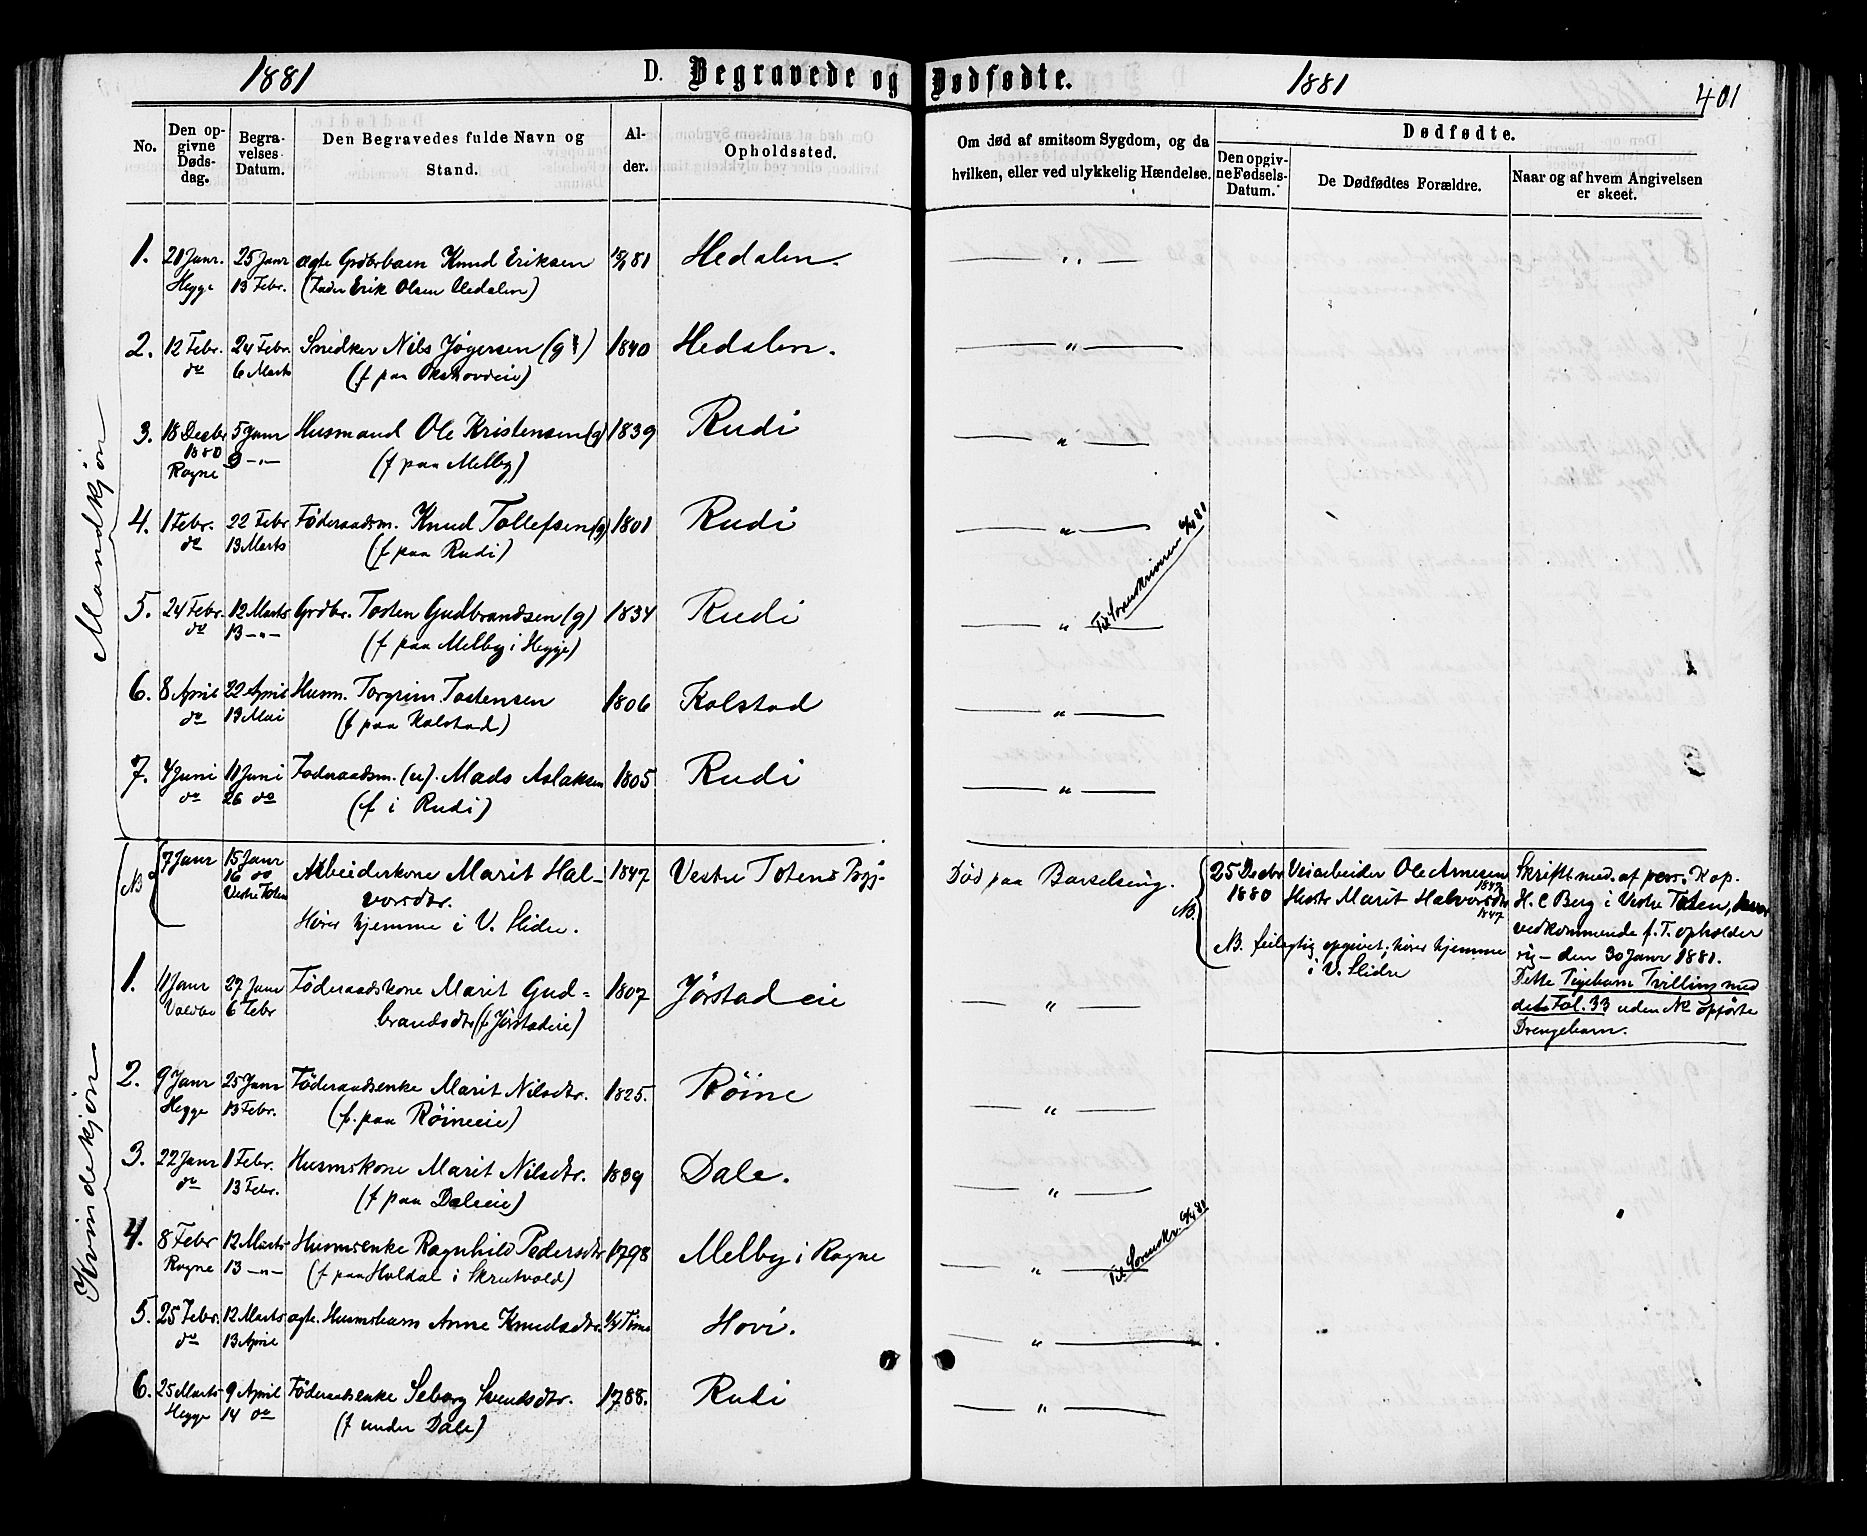 1881 D. Begravede og Dødfødte. 1881 401
No.
Den opgivne Dødsdag.
Begravelses Datum.
Den Begravedes fulde Navn og Stand.
Alder.
Opholdssted.
Om død af smitsom Sygdom, og da hvilken, eller ved ulykkelig Hændelse.
Dødfødte.
Den opgivne Fødsels-Datum.
De Dødfødtes Forældre.
Naar og af hvem Angivelsen er skeet.
Mandkjön
1. 21 Janr. 25 Janr ægte Grdbrbarn Knud Eriksen 81 Hedalen. — " —
Hegge 13 Febr. (Fader Erik Olsen Hedalen)
2. 12 Febr. 24 Febr. Snedker Nils Jögersen (g) 1840 Hedalen. — " —
do 6 Marts (f paa Okshovdeie)
3. 18 Decbr 5 Janr Husmand Ole Kristensen (g) 1839 Rudi — " —
1880 9 —"— (f paa Melby)
Rogne
4. 1 Febr. 22 Febr Föderaadsm. Knud Tollefsen (g) 1801 Rudi — " —
do 13 Marts (f paa Rudi)
5. 24 Febr. 12 Marts Grdbr. Tosten Gudbrandsen (g) 1834 Rudi — " — Til Sorenskriveren 6/4 81
do 13 —"— (f paa Melby i Hegge)
6. 8 April 22 April Husm. Torgrim Tostensen 1806 Kolstad — " —
do 19 Mai (f paa Kolstad)
7. 4 Juni 11 Juni Föderaadsm. (u). Mads Aslaksen 1805 Rudi — " —
do 26 do (f i Rudi)
NB 7 Janr 15 Janr Arbeiderkone Marit Hal- 1847 Vestre Totens Pgj. Död paa Barselseng.
16 do vorsdtr.
Vestre Toten Hører hjemme i V. Slidre.
NB. 25 Decbr 1880 Veiarbeider Ole Arnesen 1847
Hustr Marit Halvorsdtr 1847
NB. feilagtig opgivet; hører hjemme
i V. Slidre
Skriftl. med. af pers. Kap.
H. C Berg i Vestre Toten, hvor
vedkommende f. T. opholder
sig — den 30 Janr 1881.
Dette Pigebarn Tvilling med
det Fol. 33 uden No opførte
Drengebarn.
Kvindekjön
1. 11 Janr 27 Janr Föderaadskone Marit Gud- 1807 Jørstadeie — " —
Volbo 6 Febr brandsdtr (f Jørstadeie)
2. 9 Janr 25 Janr Föderaadsenke Marit Nilsdtr. 1825. Röine — " —
Hegge 13 Febr. (f. paa Röineeie)
3. 22 Janr 1 Febr. Husmskone Marit Nilsdtr. 1839 Dale. — " —
do 13 Febr. (f paa Daleeie)
4. 8 Febr 12 Marts Husmsenke Ragnhild Pedersdtr 1798 Melby i Rogne — " — Til Sorenskr. 6/4 81
Rogne 13 —"— (f paa Haldal i Skrutvold)
5. 25 Febr. 12 Marts ægte. Husmsbarn Anne Knudsdtr. 1/4 Time Hovi. — " —
do 13 April
6. 25 Marts 9 April Föderaadsenke Seborg Svendsdtr. 1788. Rudi — " —
Hegge 14 do (f under Dale)